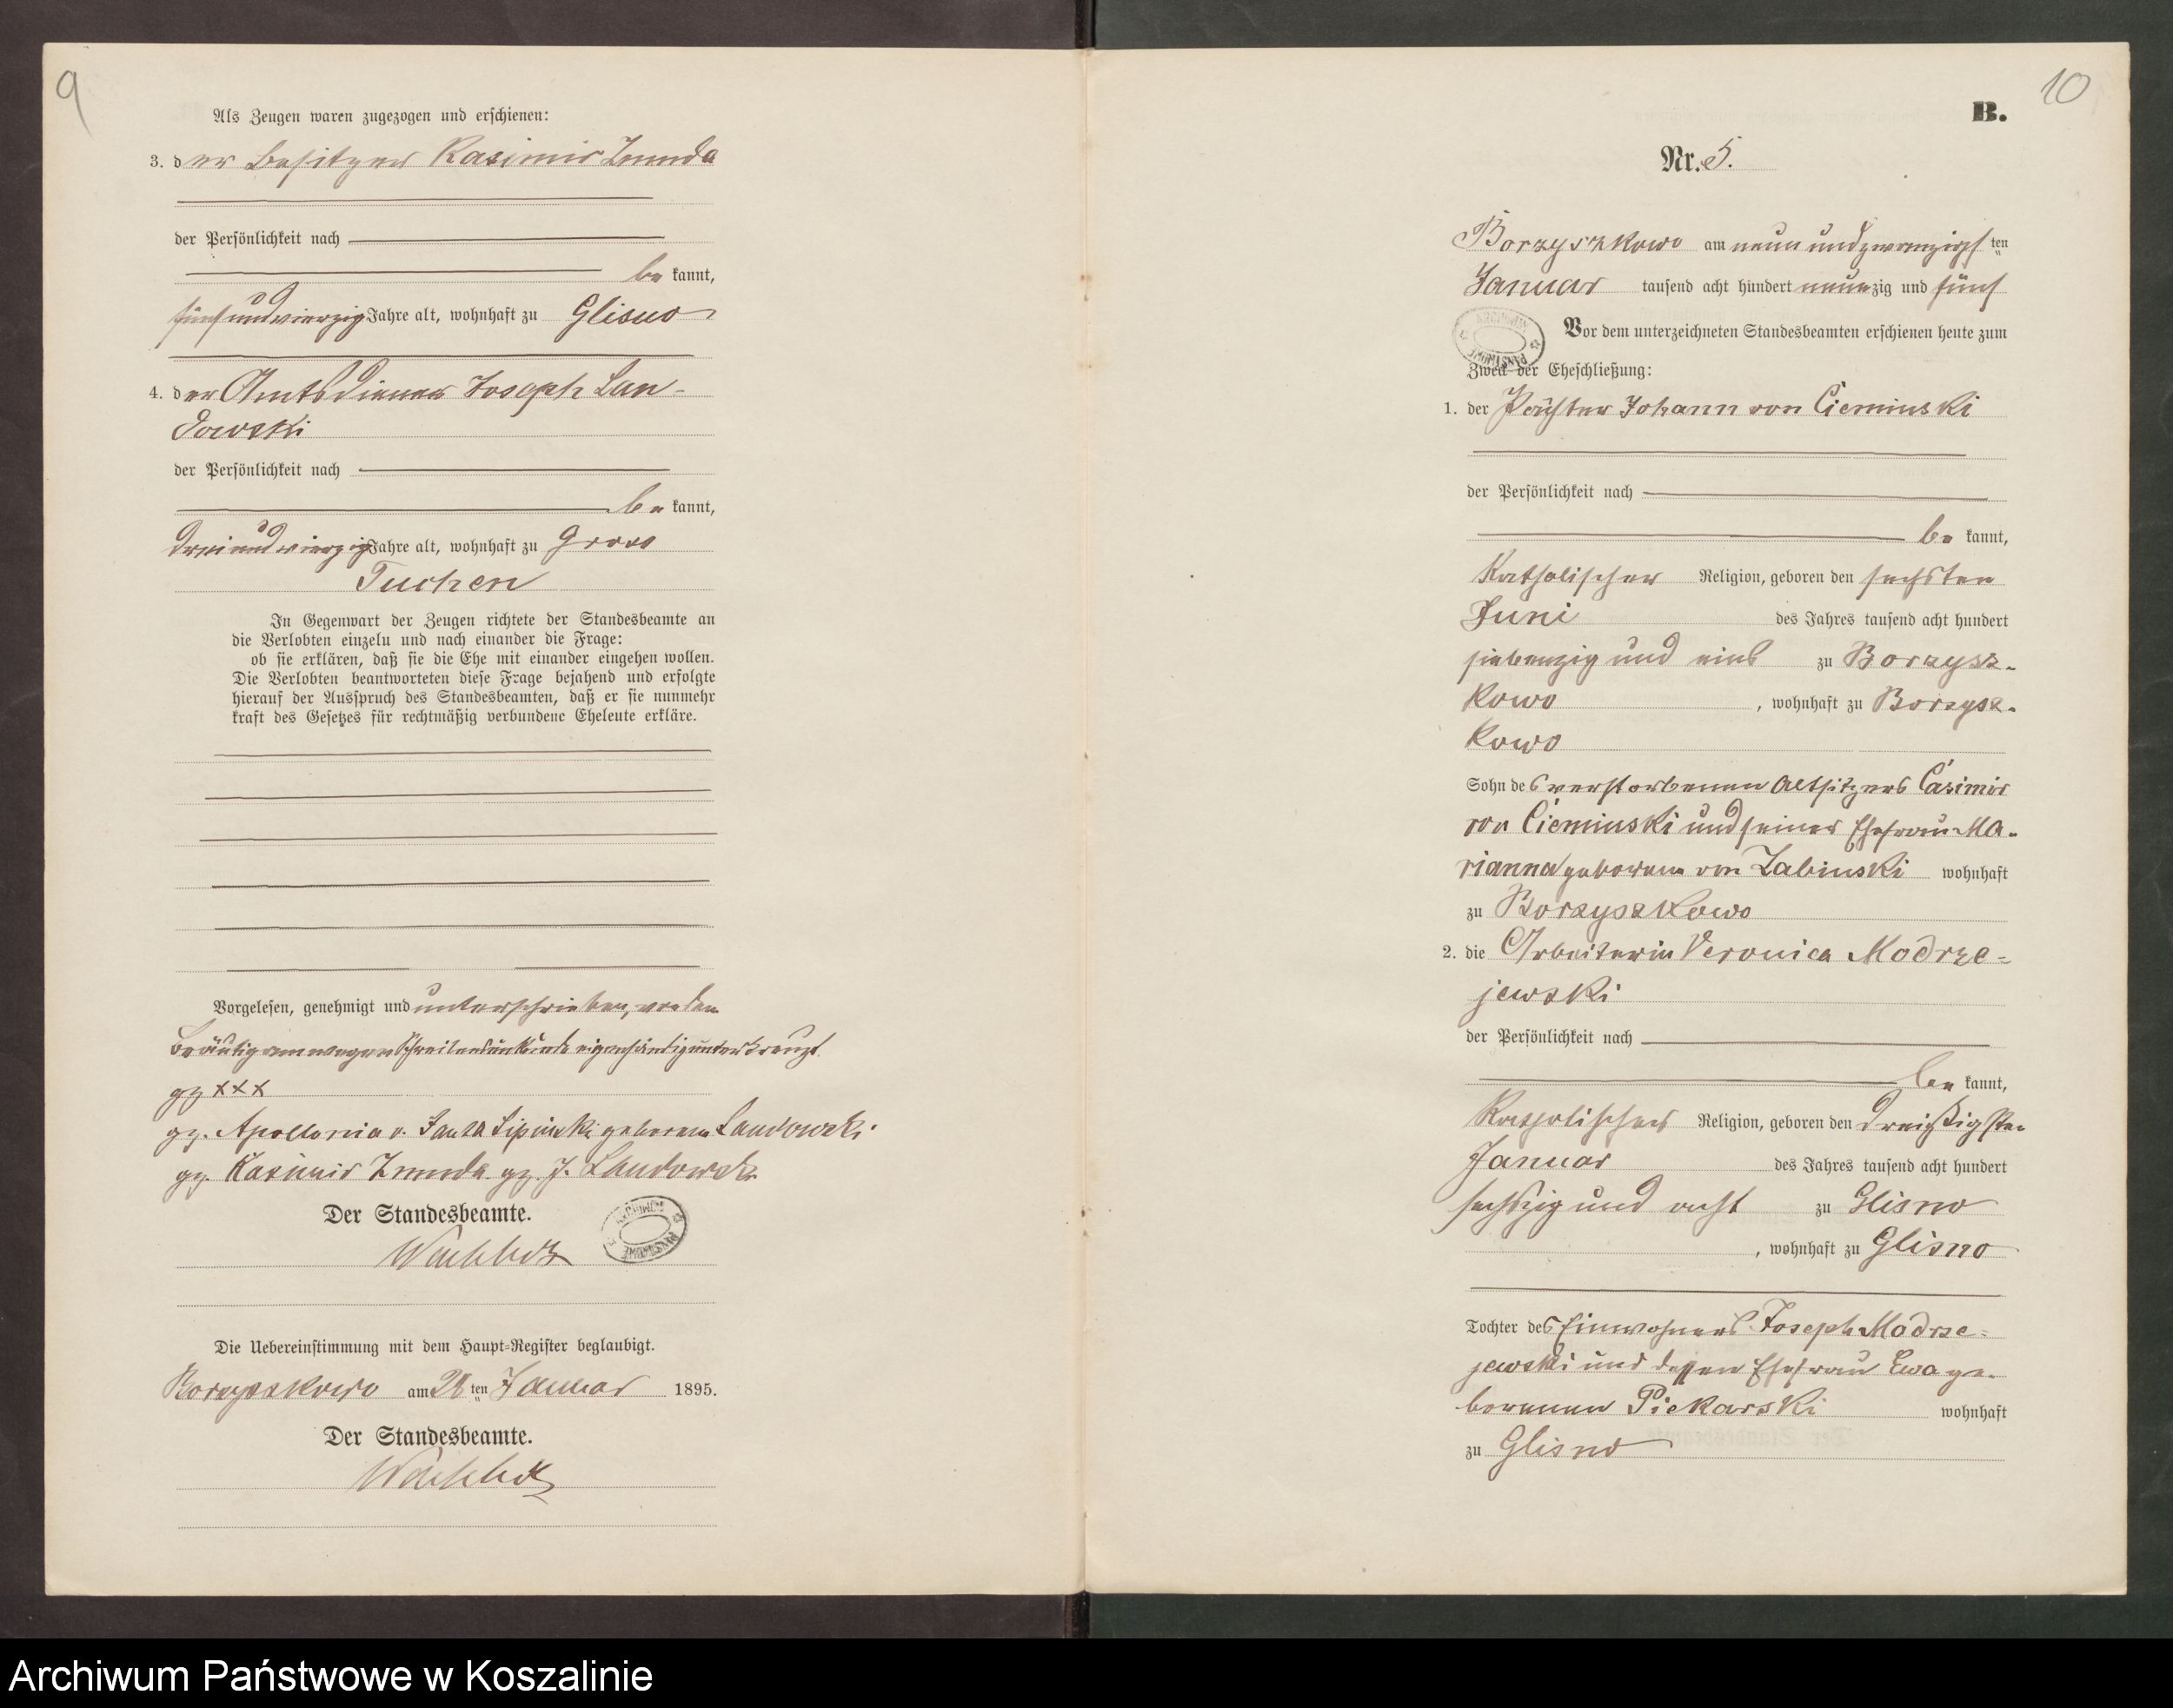 9
Als Zeugen waren zugezogen und erschienen:
3. der Besitzer Kasimir Zmuda
der Persönlichkeit nach
be kannt,
fünfundvierzig Jahre alt, wohnhaft zu Glisno
4. der Amtsdiener Joseph Lan-
dowski
der Persönlichkeit nach
be kannt,
dreiundvierzig Jahre alt, wohnhaft zu Gross
Tuchen
In Gegenwart der Zeugen richtete der Standesbeamte an
die Verlobten einzeln und nach einander die Frage:
ob sie erklären, daß sie die Ehe mit einander eingehen wollen.
Die Verlobten beantworteten diese Frage bejahend und erfolgte
hierauf der Ausspruch des Standesbeamten, daß er sie nunmehr
kraft des Gesetzes für rechtmäßig verbundene Eheleute erkläre.
Vorgelesen, genehmigt und unterschrieben, von dem
Bräutigam wegen Schreibensunkunde eigenhändig unterkreuzt.
gz xxx
gz. Apollonia v. Janta Lipinski geborene Landowski
gz. Kasimir Zmuda. gz. J. Landowski
Der Standesbeamte.
ARCHIWUM PAŃSTWOWE
Die Uebereinstimmung mit dem Haupt-Register beglaubigt.
Borzyszkowo am 28 ten Januar 1895.
Der Standesbeamte.
10
B.
Nr. 5.
Borzyszkowo am neunundzwanzigsten
Januar tausend acht hundert neunzig und fünf
Vor dem unterzeichneten Standesbeamten erschienen heute zum
Zweck der Eheschließung:
ARCHIWUM PAŃSTWOWE
1. der Pächter Johann von Cieminski
der Persönlichkeit nach
be kannt,
Katholischer Religion, geboren den sechsten
Juni des Jahres tausend acht hundert
siebenzig und eins zu Borzysz-
kowo, wohnhaft zu Borzysz-
kowo
Sohn des verstorbenen Altsitzers Casimir
von Cieminski und seiner Ehefrau Ma-
rianna geborene von Zabinski wohnhaft
zu Borzyszkowo
2. die Arbeiterin Veronica Modrze-
jewski
der Persönlichkeit nach
be kannt,
Katholischer Religion, geboren den dreißigsten
Januar des Jahres tausend acht hundert
sechszig und acht zu Glisno
, wohnhaft zu Glisno
Tochter des Einwohners Joseph Modrze-
jewski und dessen Ehefrau Ewa ge-
borenen Piekarski wohnhaft
zu Glisno
Archiwum Państwowe w Koszalinie